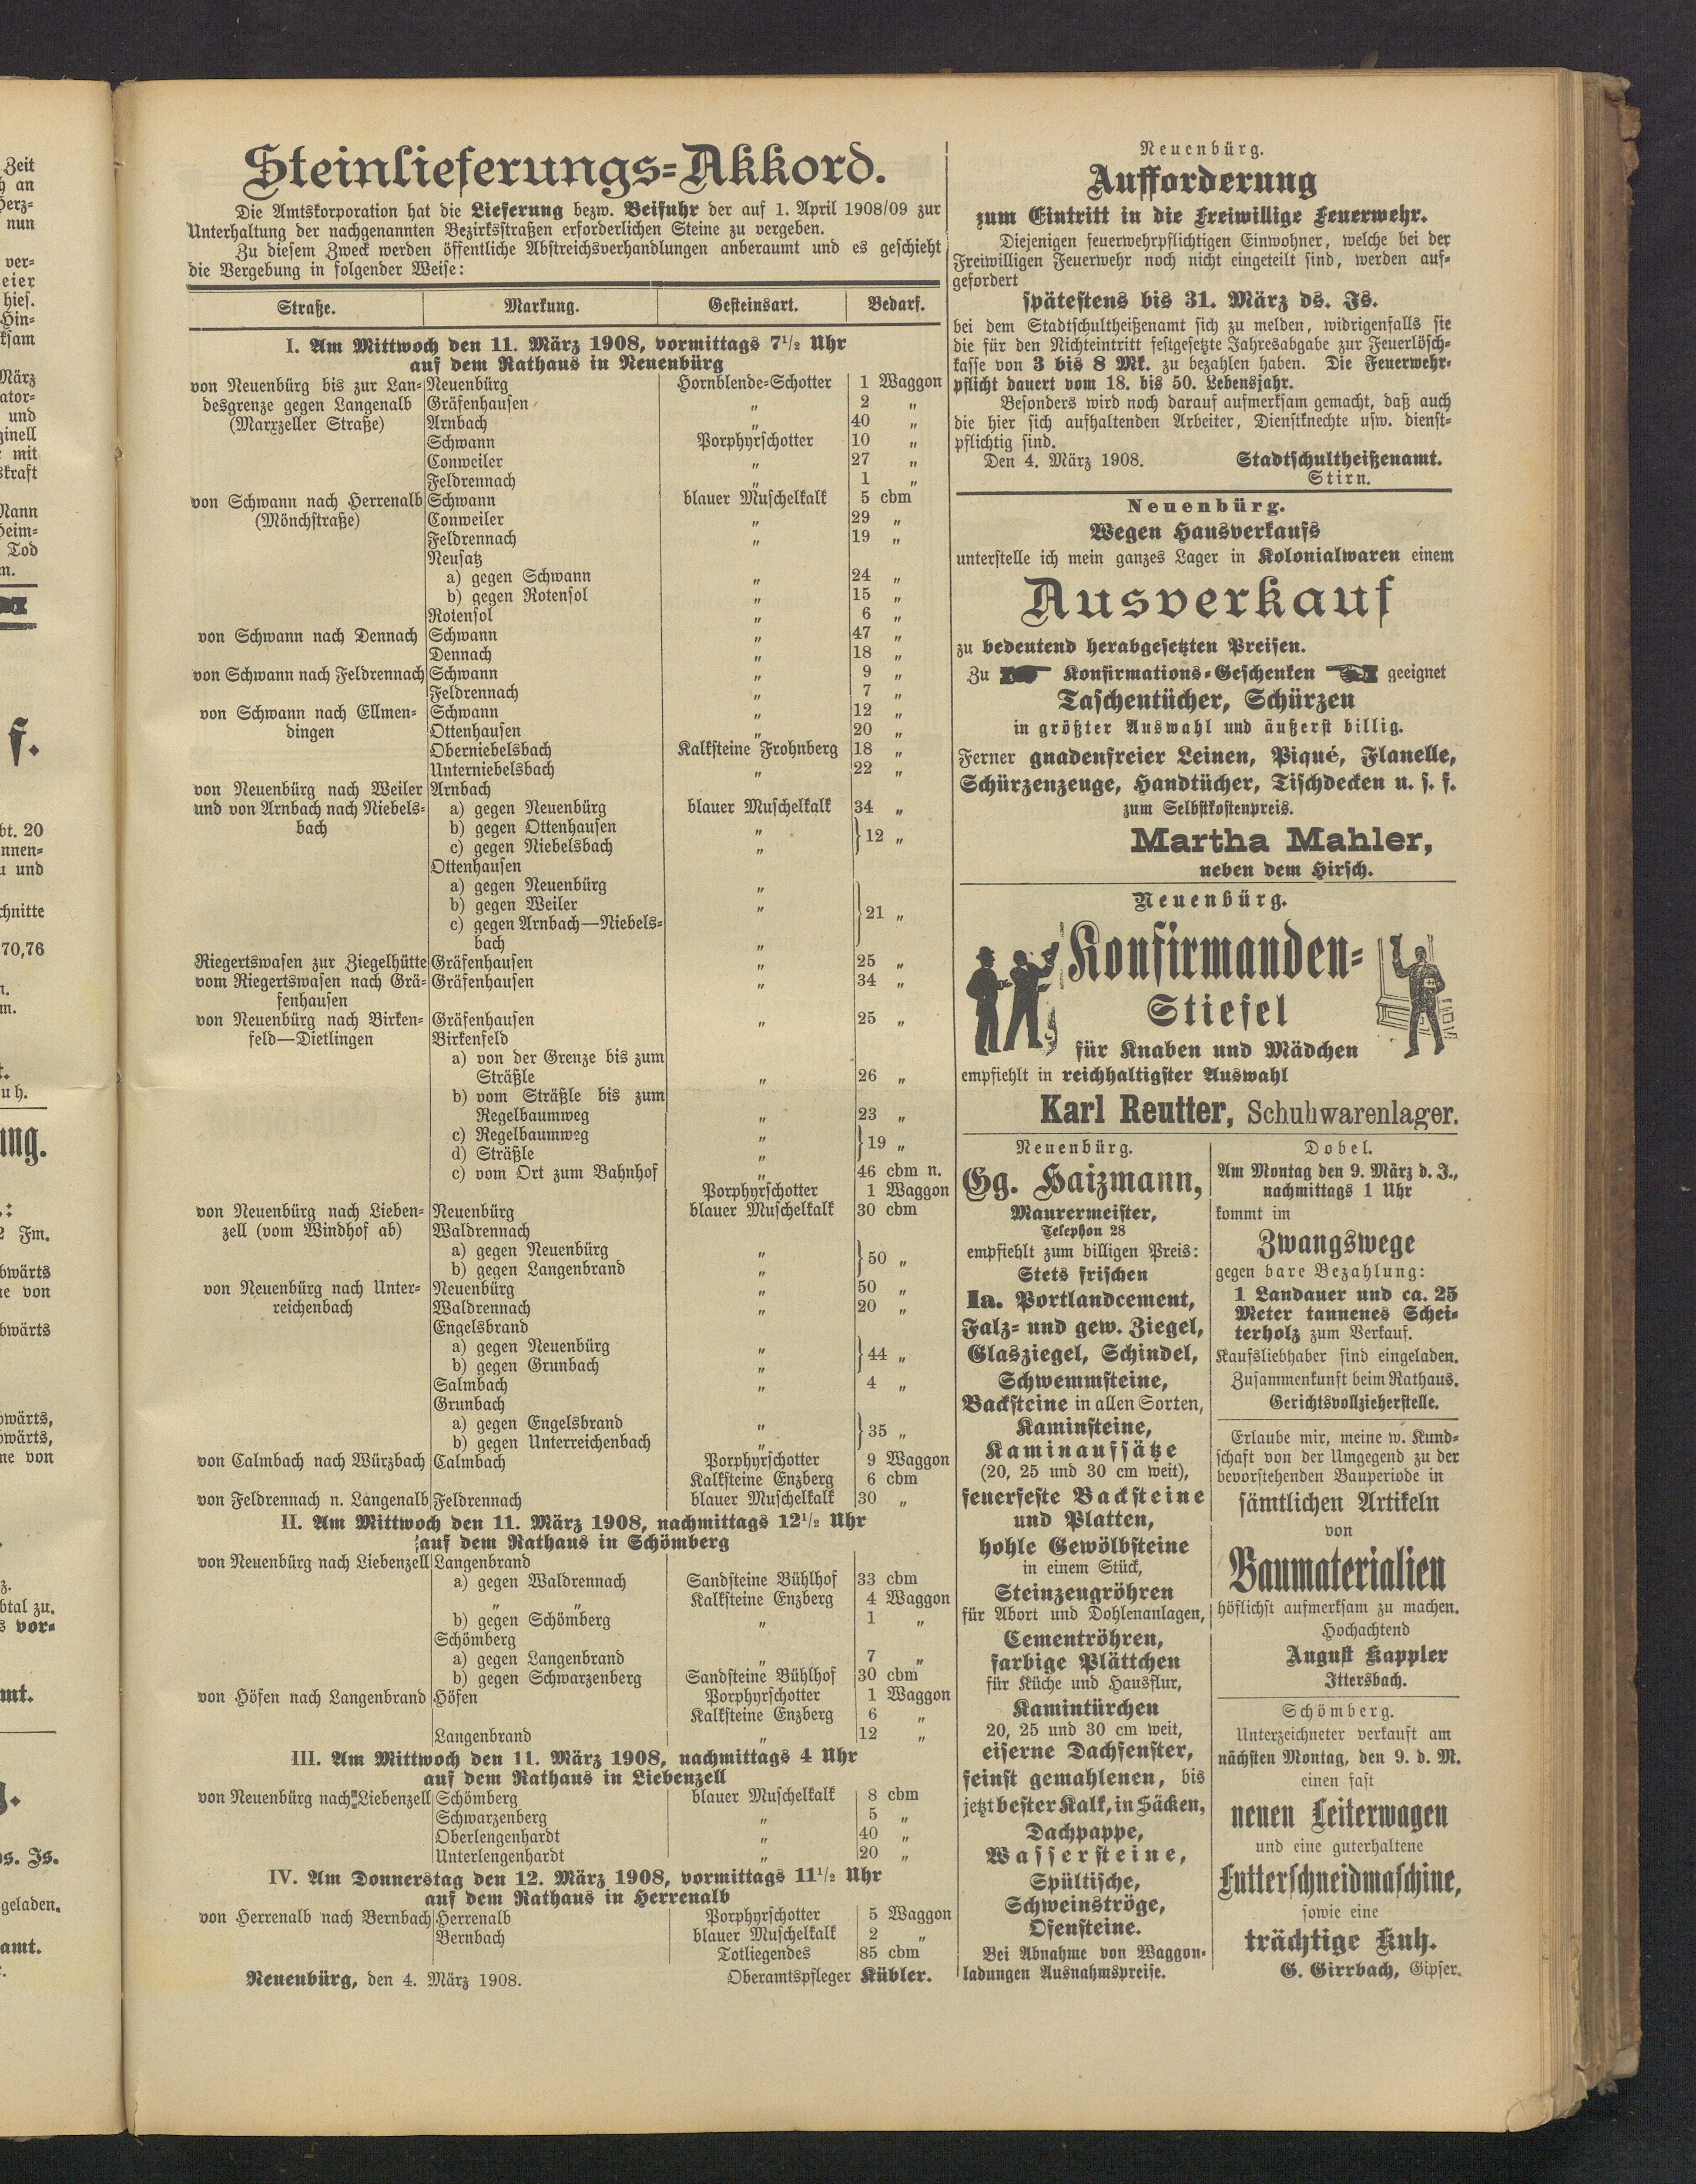 Steinlieferungs-Akkord.
Die Amtskorporation hat die Lieferung bezw. Beifuhr der auf 1. April 1908/09 zur
Unterhaltung der nachgenannten Bezirksstraßen erforderlichen Steine zu vergeben.
Zu diesem Zweck werden öffentliche Abstreichsverhandlungen anberaumt und es geschieht
die Vergebung in folgender Weise:
Straße. Markung. Gesteinsart. Bedarf.
I. Am Mittwoch den 11. März 1908, vormittags 7½ Uhr
auf dem Rathaus in Neuenbürg
von Neuenbürg bis zur Lan- Neuenbürg Hornblende-Schotter 1 Waggon
desgrenze gegen Langenalb Gräfenhausen „ 2 „
(Marxzeller Straße) Arnbach „ 40 „
Schwann Porphyrschotter 10 „
Conweiler „ 27 „
Feldrennach „ 1 „
von Schwann nach Herrenalb Schwann blauer Muschelkalk 5 cbm
(Mönchstraße) Conweiler „ 29 „
Feldrennach „ 19 „
Neusatz
a) gegen Schwann „ 24 „
b) gegen Rotensol „ 15 „
Rotensol „ 6 „
von Schwann nach Dennach Schwann „ 47 „
Dennach „ 18 „
von Schwann nach Feldrennach Schwann „ 9 „
Feldrennach „ 7 „
von Schwann nach Ellmen- Schwann „ 12 „
dingen Ottenhausen „ 20 „
Oberniebelsbach Kalksteine Frohnberg 18 „
Unterniebelsbach „ 22 „
von Neuenbürg nach Weiler Arnbach
und von Arnbach nach Niebels- a) gegen Neuenbürg blauer Muschelkalk 34 „
bach b) gegen Ottenhausen „ } 12 „
c) gegen Niebelsbach „
Ottenhausen
a) gegen Neuenbürg „
b) gegen Weiler „ } 21 „
c) gegen Arnbach—Niebels-
bach „
Riegertswasen zur Ziegelhütte Gräfenhausen „ 25 „
vom Riegertswasen nach Grä- Gräfenhausen „ 34 „
fenhausen
von Neuenbürg nach Birken- Gräfenhausen „ 25 „
feld—Dietlingen Birkenfeld
a) von der Grenze bis zum
Sträßle „ 26 „
b) vom Sträßle bis zum
Regelbaumweg „ 23 „
c) Regelbaumweg „ } 19 „
d) Sträßle „
c) vom Ort zum Bahnhof „ 46 cbm n.
Porphyrschotter 1 Waggon
von Neuenbürg nach Lieben- Neuenbürg blauer Muschelkalk 30 cbm
zell (vom Windhof ab) Waldrennach
a) gegen Neuenbürg „ } 50 „
b) gegen Langenbrand „
von Neuenbürg nach Unter- Neuenbürg „ 50 „
reichenbach Waldrennach „ 20 „
Engelsbrand
a) gegen Neuenbürg „ } 44 „
b) gegen Grunbach „
Salmbach „ 4 „
Grunbach
a) gegen Engelsbrand „ } 35 „
b) gegen Unterreichenbach „
von Calmbach nach Würzbach Calmbach Porphyrschotter 9 Waggon
Kalksteine Enzberg 6 cbm
von Feldrennach n. Langenalb Feldrennach blauer Muschelkalk 30 „
II. Am Mittwoch den 11. März 1908, nachmittags 12½ Uhr
auf dem Rathaus in Schömberg
von Neuenbürg nach Liebenzell Langenbrand
a) gegen Waldrennach Sandsteine Bühlhof 33 cbm
„ „ Kalksteine Enzberg 4 Waggon
b) gegen Schömberg „ 1 „
Schömberg
a) gegen Langenbrand „ 7 „
b) gegen Schwarzenberg Sandsteine Bühlhof 30 cbm
von Höfen nach Langenbrand Höfen Porphyrschotter 1 Waggon
Kalksteine Enzberg 6 „
Langenbrand „ 12 „
III. Am Mittwoch den 11. März 1908, nachmittags 4 Uhr
auf dem Rathaus in Liebenzell
von Neuenbürg nach Liebenzell Schömberg blauer Muschelkalk 8 cbm
Schwarzenberg „ 5 „
Oberlengenhardt „ 40 „
Unterlengenhardt „ 20 „
IV. Am Donnerstag den 12. März 1908, vormittags 11½ Uhr
auf dem Rathaus in Herrenalb
von Herrenalb nach Bernbach Herrenalb Porphyrschotter 5 Waggon
Bernbach blauer Muschelkalk 2 „
Totliegendes 85 cbm
Neuenbürg, den 4. März 1908. Oberamtspfleger Kübler.
Neuenbürg.
Aufforderung
zum Eintritt in die Freiwillige Feuerwehr.
Diejenigen feuerwehrpflichtigen Einwohner, welche bei der
Freiwilligen Feuerwehr noch nicht eingeteilt sind, werden auf-
gefordert
spätestens bis 31. März ds. Js.
bei dem Stadtschultheißenamt sich zu melden, widrigenfalls sie
die für den Nichteintritt festgesetzte Jahresabgabe zur Feuerlösch-
kasse von 3 bis 8 Mk. zu bezahlen haben. Die Feuerwehr-
pflicht dauert vom 18. bis 50. Lebensjahr.
Besonders wird noch darauf aufmerksam gemacht, daß auch
die hier sich aufhaltenden Arbeiter, Dienstknechte usw. dienst-
pflichtig sind.
Den 4. März 1908. Stadtschultheißenamt.
Stirn.
Neuenbürg.
Wegen Hausverkaufs
unterstelle ich mein ganzes Lager in Kolonialwaren einem
Ausverkauf
zu bedeutend herabgesetzten Preisen.
Zu Konfirmations-Geschenken geeignet
Taschentücher, Schürzen
in größter Auswahl und äußerst billig.
Ferner gnadenfreier Leinen, Piqué, Flanelle,
Schürzenzeuge, Handtücher, Tischdecken u. s. f.
zum Selbstkostenpreis.
Martha Mahler,
neben dem Hirsch.
Neuenbürg.
Konfirmanden-
Stiefel
für Knaben und Mädchen
empfiehlt in reichhaltigster Auswahl
Karl Reutter, Schuhwarenlager.
Neuenbürg.
Gg. Haizmann,
Maurermeister,
Telephon 28
empfiehlt zum billigen Preis:
Stets frischen
Ia. Portlandcement,
Falz- und gew. Ziegel,
Glasziegel, Schindel,
Schwemmsteine,
Backsteine in allen Sorten,
Kaminsteine,
Kaminaufsätze
(20, 25 und 30 cm weit),
feuerfeste Backsteine
und Platten,
hohle Gewölbsteine
in einem Stück,
Steinzeugröhren
für Abort und Dohlenanlagen,
Cementröhren,
farbige Plättchen
für Küche und Hausflur,
Kamintürchen
20, 25 und 30 cm weit,
eiserne Dachfenster,
feinst gemahlenen, bis
jetzt bester Kalk, in Säcken,
Dachpappe,
Wassersteine,
Spültische,
Schweinströge,
Ofensteine.
Bei Abnahme von Waggon-
ladungen Ausnahmspreise.
Dobel.
Am Montag den 9. März d. J.,
nachmittags 1 Uhr
kommt im
Zwangswege
gegen bare Bezahlung:
1 Landauer und ca. 25
Meter tannenes Schei-
terholz zum Verkauf.
Kaufsliebhaber sind eingeladen.
Zusammenkunft beim Rathaus.
Gerichtsvollzieherstelle.
Erlaube mir, meine w. Kund-
schaft von der Umgegend zu der
bevorstehenden Bauperiode in
sämtlichen Artikeln
von
Baumaterialien
höflichst aufmerksam zu machen.
Hochachtend
August Kappler
Ittersbach.
Schömberg.
Unterzeichneter verkauft am
nächsten Montag, den 9. d. M.
einen fast
neuen Leiterwagen
und eine guterhaltene
Futterschneidmaschine,
sowie eine
trächtige Kuh.
G. Girrbach, Gipser.